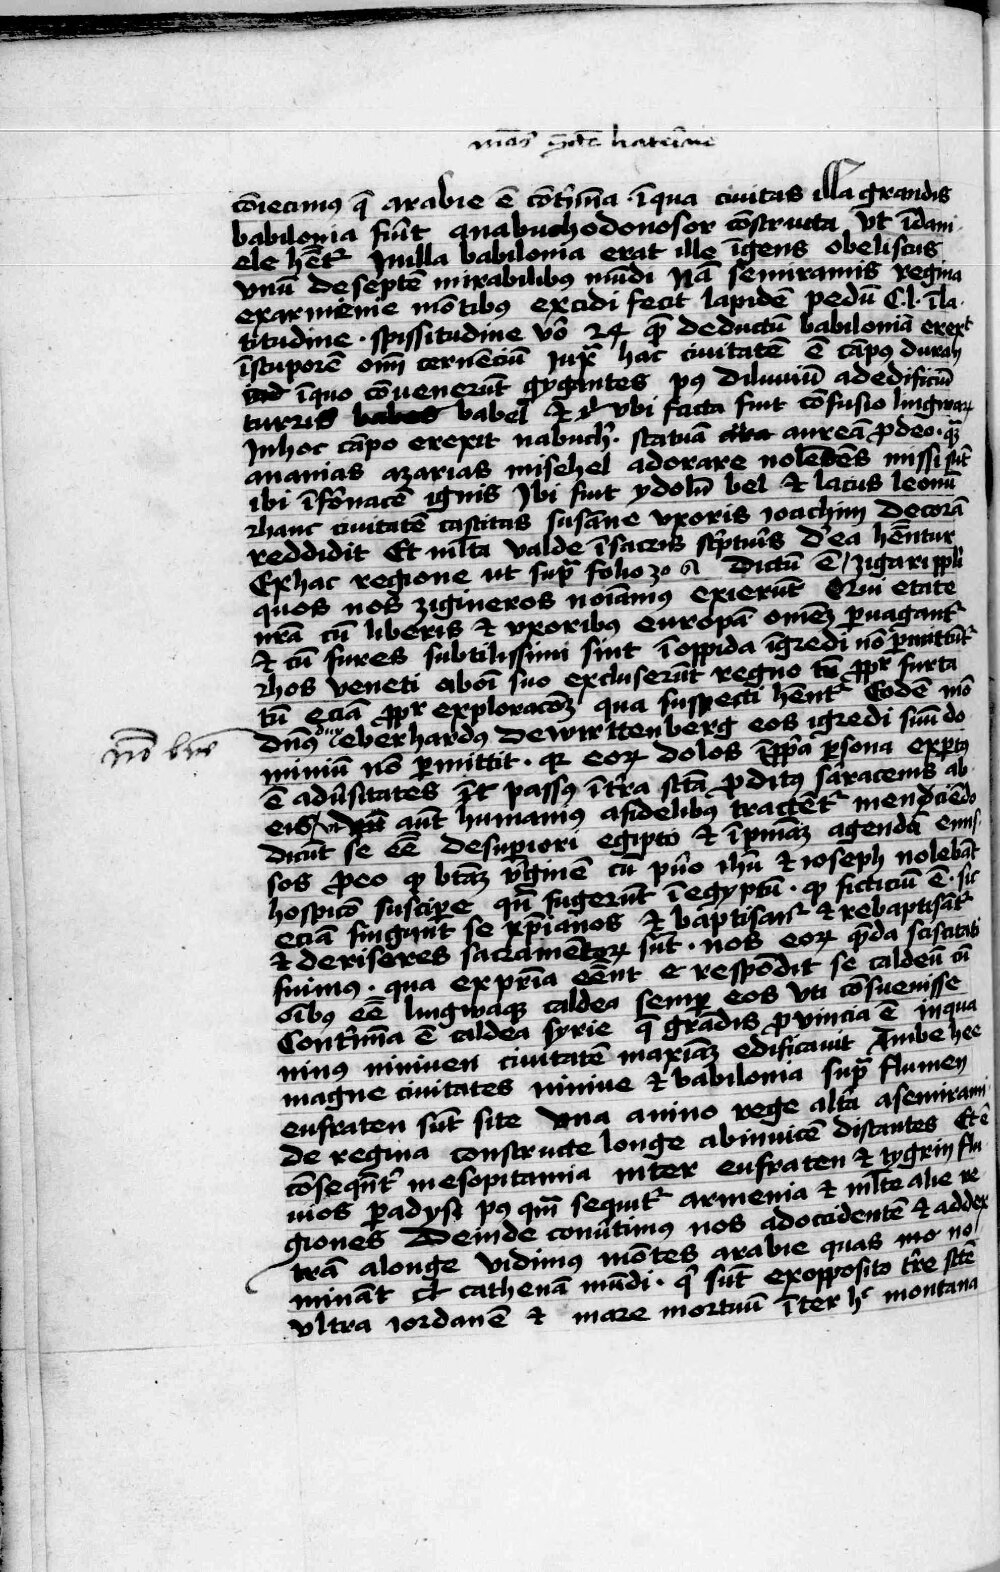 mōs sctē katerine
cōiecimus q̄ arabie ē cōtīma · ī qua ciuitas illa grandis
babilonia fuit a nabuchodonosor cōstructa vt ī dani
ele hētr̄ In illa babilonia erat ille īgens obeliscus
vnū de septē mirabilibus mūdi Nā semiramis regina
ex armenie mōtibus excidi fecit lapidē pedū C.l. ī la
titudine · spissitudine vō 24 q̄ deductū babiloniā erexit
ī stuporē oīm cernēciū Iuxᵃ hāc ciuitatē ē cāpus durah
ī quo cōuenerūt gygantes pꝰ diluuiū ad edificiū
turris babel & ubi facta fuit cōfusio lingwaꝝ
In hoc cāpo erexit nabuch̄ · statuā aureā p̄ deo · quā
ananias azarias misehel adorare nolentēs missi sūt
ibi ī fornacē ignis Ibi fuit ydolū bel & lacus leonū
& hanc ciuitatē castitas susāne vxoris ioachim decorā
reddidit Et mlta valde ī sacris scpturis d'ea hēntur
Ex hac regione ut supᵃ folio 30 dictū ē zigari ppli
quos nos zigineros noīamus exierūt Qui etate
nrā cū liberis & vxoribus europā omēʒ puagantᵣ
& cū fures subtilissimi sint ī oppida īgredi nō pmittūtᵣ
& hos veneti ab oī suo excluserūt regno ppr furta
tū eciā ppr exploracōʒ qua suspecti hētᵣ Eodē mō
nō bn̄
dn̄s dux eberhardꝰ de wirttenberg eos īgredi suū do
miniū nō pmittit · qr eoꝝ dolos ī ppa psona exptus
ē aduersitates īt passꝰ ī trā sctā pditꝰ saracenis ab
eis / vt aūt humaniꝰ a fidelibꝰ tractētᵣ menciēdo
dicūt se eē de supiori egipto & ī pniāʒ agendā emis
sos p eo q btāʒ v'ginē cū puo ihū & ioseph nolebāt
hospicō suscipe qn̄ fugerūt ī egyptū · q ficticiū ē · sic
eciā fingunt se xp̄ianos & baptisantᵣ & rebaptisātᵣ
& derisores sacramētoꝝ sūt · nos eoꝝ q̄dā sciscitati
fuimus · qua ex pria eēnt & respōdit se caldeū cū
oībꝰ eē lingwaqʒ caldea semp eos vti cōsueuisse
Contīma ē caldea syrie q̄ grādis puincia ē in qua
ninus niniuen ciuitatē maxiāʒ edificauit Ambe hee
magne ciuitates niniue & babilonia supᵃ flumen
eufraten sūt site vna a nino rege altā a semirami
de regina constructe longe ab inuicē distantes Et ē
cōseqntᵣ mesopitamia inter eufraten & tygrin flu
uios padysi pꝰ quā sequitᵣ armenia & mlte alie re
giones Deinde conūtimus nos ad occidentē & ad dex
trā a longe vidimus mōtes arabie quas no
minant cathenā mūdi · q̄ sūt ex opposito tre sctē
vltra iordanē & mare mortuū īter hc montana